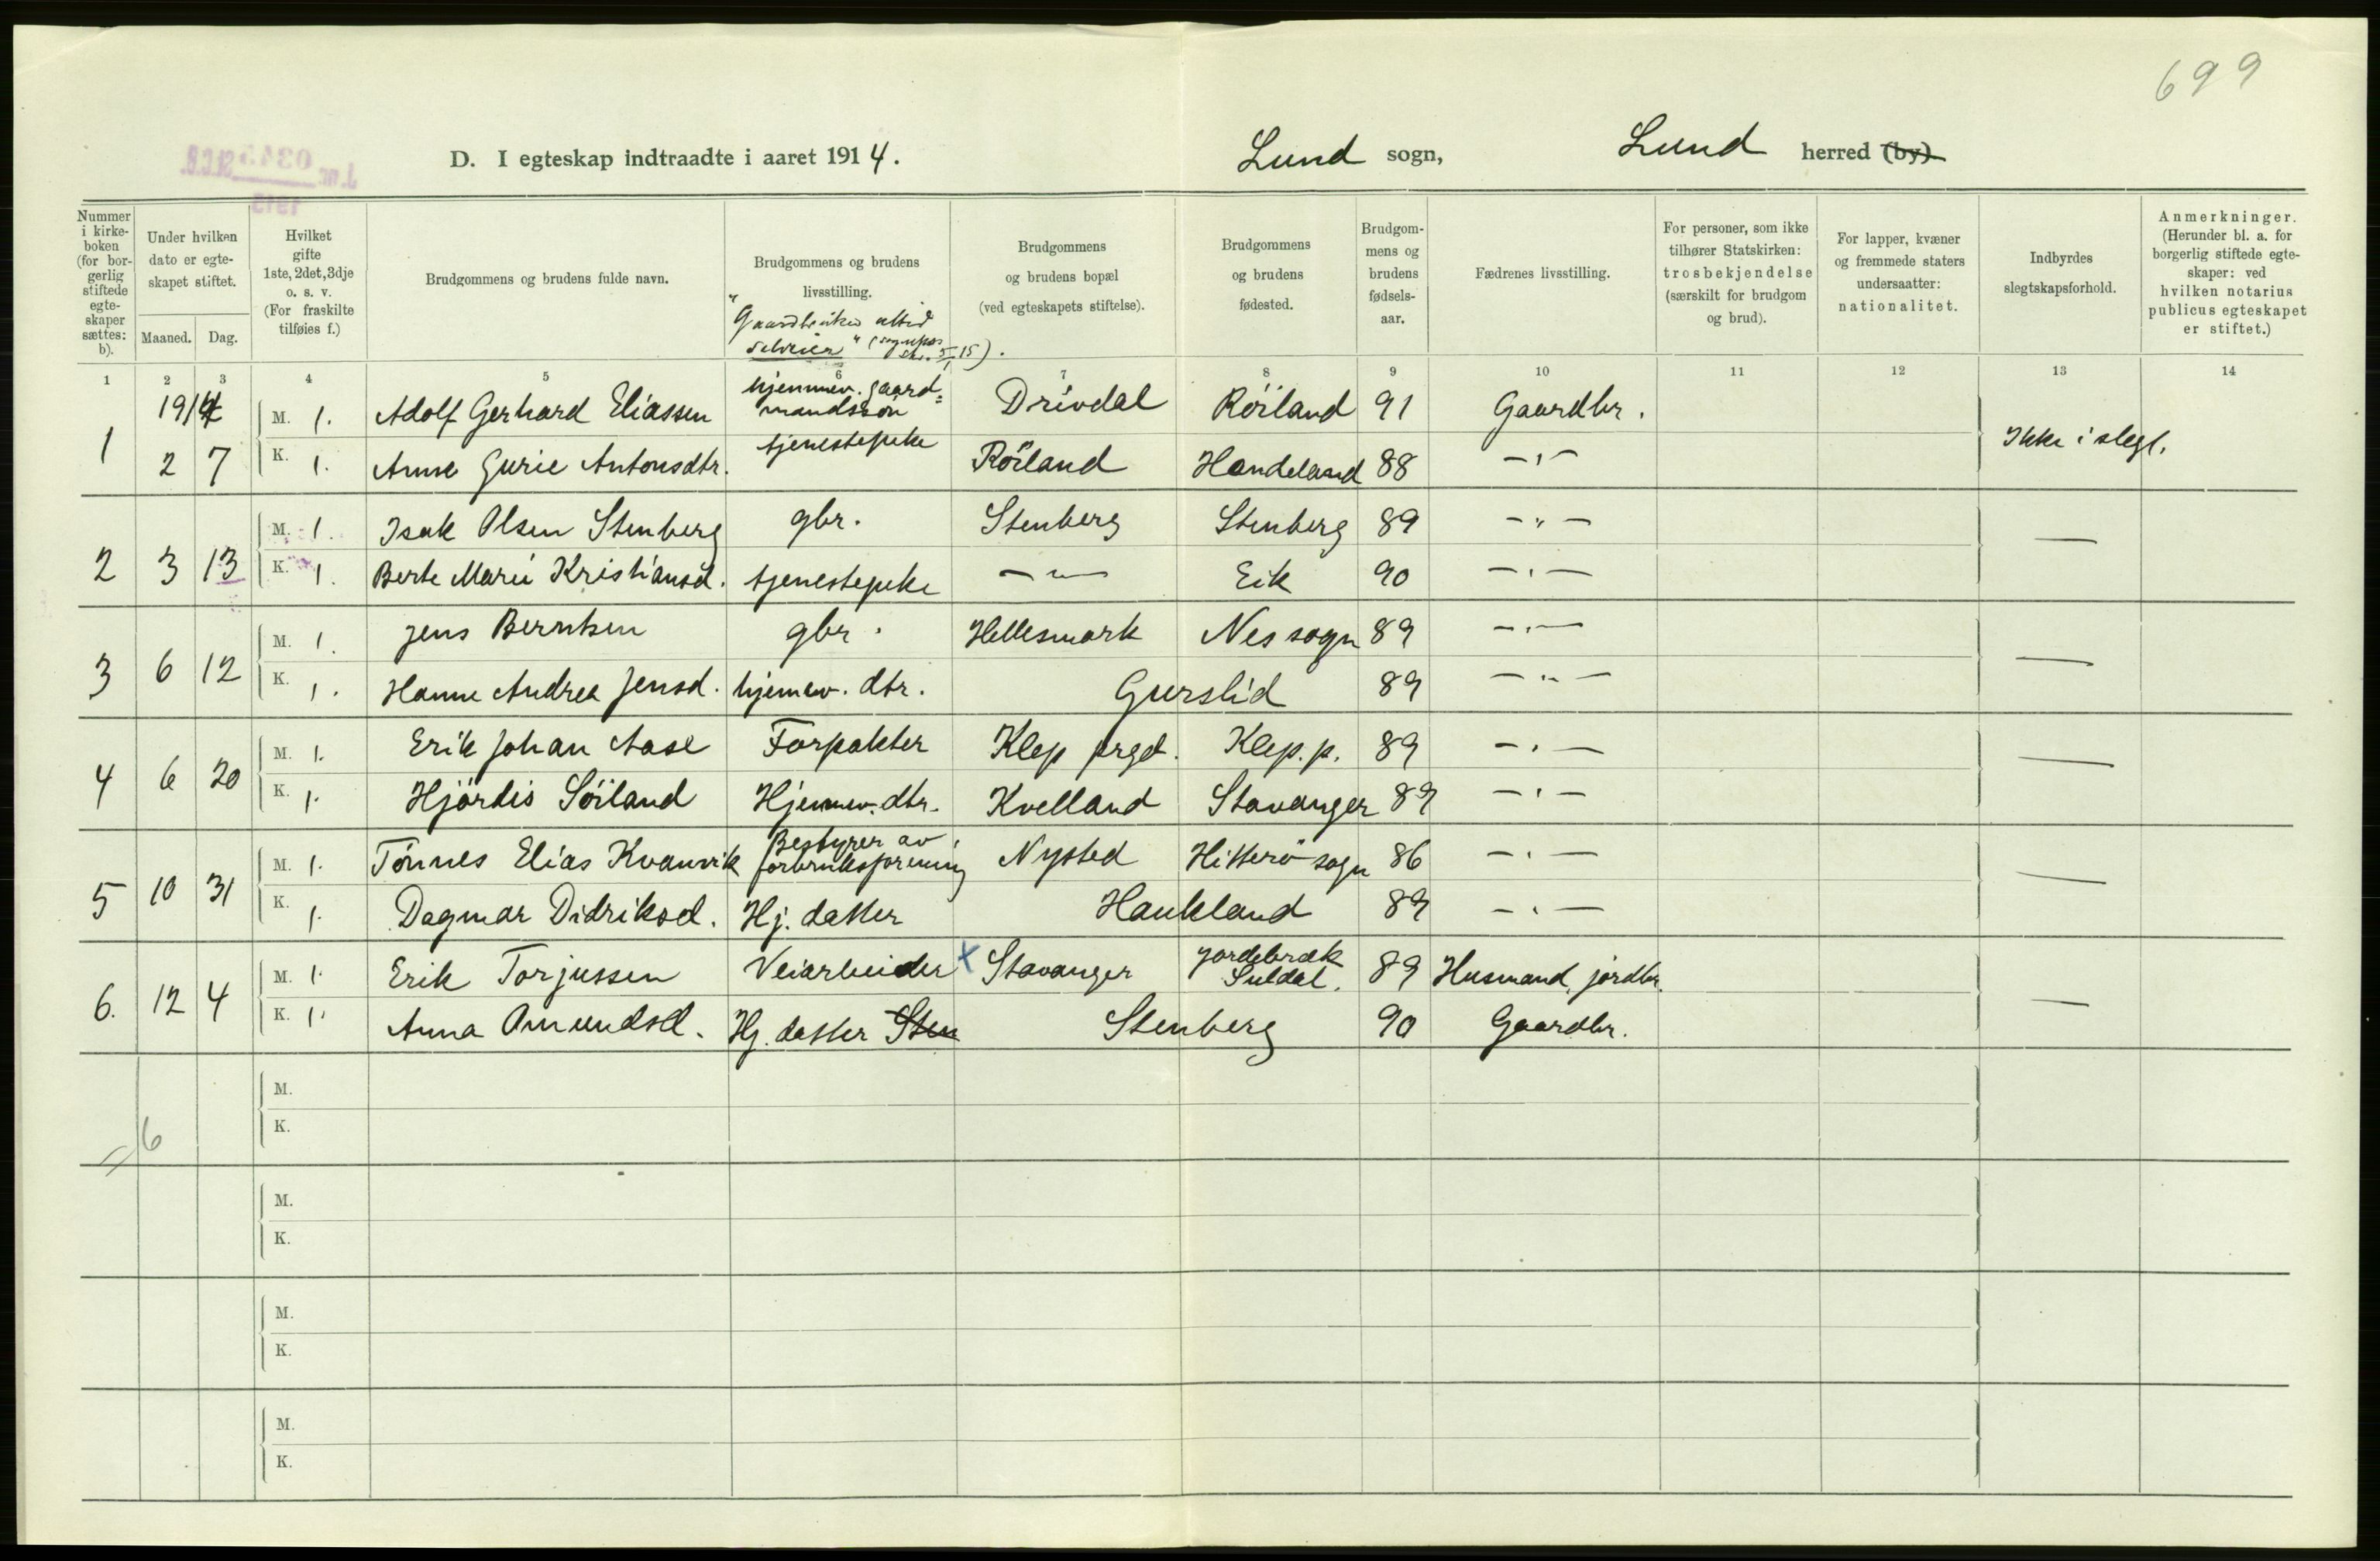 699
D. I egteskap indtraadte i aaret 1914. Lund sogn, Lund herred (by)
Nummer i kirkeboken (for borgerlig stiftede egteskaper sættes: b).
Under hvilken dato er egteskapet stiftet.
Maaned. Dag.
Hvilket gifte 1ste, 2det, 3dje o. s. v. (For fraskilte tilføies f.)
Brudgommens og brudens fulde navn.
Brudgommens og brudens livsstilling.
"Gaardbruker altid selveier"
Brudgommens og brudens bopæl (ved egteskapets stiftelse).
Brudgommens og brudens fødested.
Brudgommens og brudens fødselsaar.
Fædrenes livsstilling.
For personer, som ikke tilhører Statskirken: trosbekjendelse (særskilt for brudgom og brud).
For lapper, kvæner og fremmede staters undersaatter: nationalitet.
Indbyrdes slegtskapsforhold.
Anmerkninger. (Herunder bl. a. for borgerlig stiftede egteskaper: ved hvilken notarius publicus egteskapet er stiftet.)
1 2 3 4 5 6 7 8 9 10 11 12 13 14
1914 M. 1. Adolf Gerhard Eliassen hjemmev. gaardmandssøn Drivdal Röiland 91 Gaardbr.
1 2 7 K. 1. Anne Gurie Antonsdtr. tjenestepike Röiland Handeland 88 -"- Ikke i slegt.
M. 1. Isak Olsen Stenberg gbr. Stenberg Stenberg 89 -"-
2 3 13 K. 1. Berte Marie Kristiansd. tjenestepike -"- Eik 90 -"- —
M. 1. Jens Berntsen gbr. Hellesmark Nes sogn 89 -"-
3 6 12 K. 1. Hanne Andrea Jensd. hjemmev. dtr. Gurslid 89 -"- —
M. 1. Erik Johan Aase Forpakter Klep prgd. Klep. p. 89 -"-
4 6 20 K. 1. Hjördis Söiland Hjemmev. dtr. Kvelland Stavanger 89 -"- —
M. 1. Tönnes Elias Kvanvik Bestyrer av forbruksforening Nysted Hitterö sogn 86 -"-
5 10 31 K. 1. Dagmar Didriksd. Hj. datter Haukland 89 -"- —
M. 1. Erik Torjussen Veiarbeider x Stavanger Jordebræk Suldal. 89 Husmand, jordbr.
6. 12 4 K. 1. Anna Omundsd. Hj. datter Sten Stenberg 90 Gaardbr. —
M.
K.
6
M.
K.
M.
K.
M.
K.